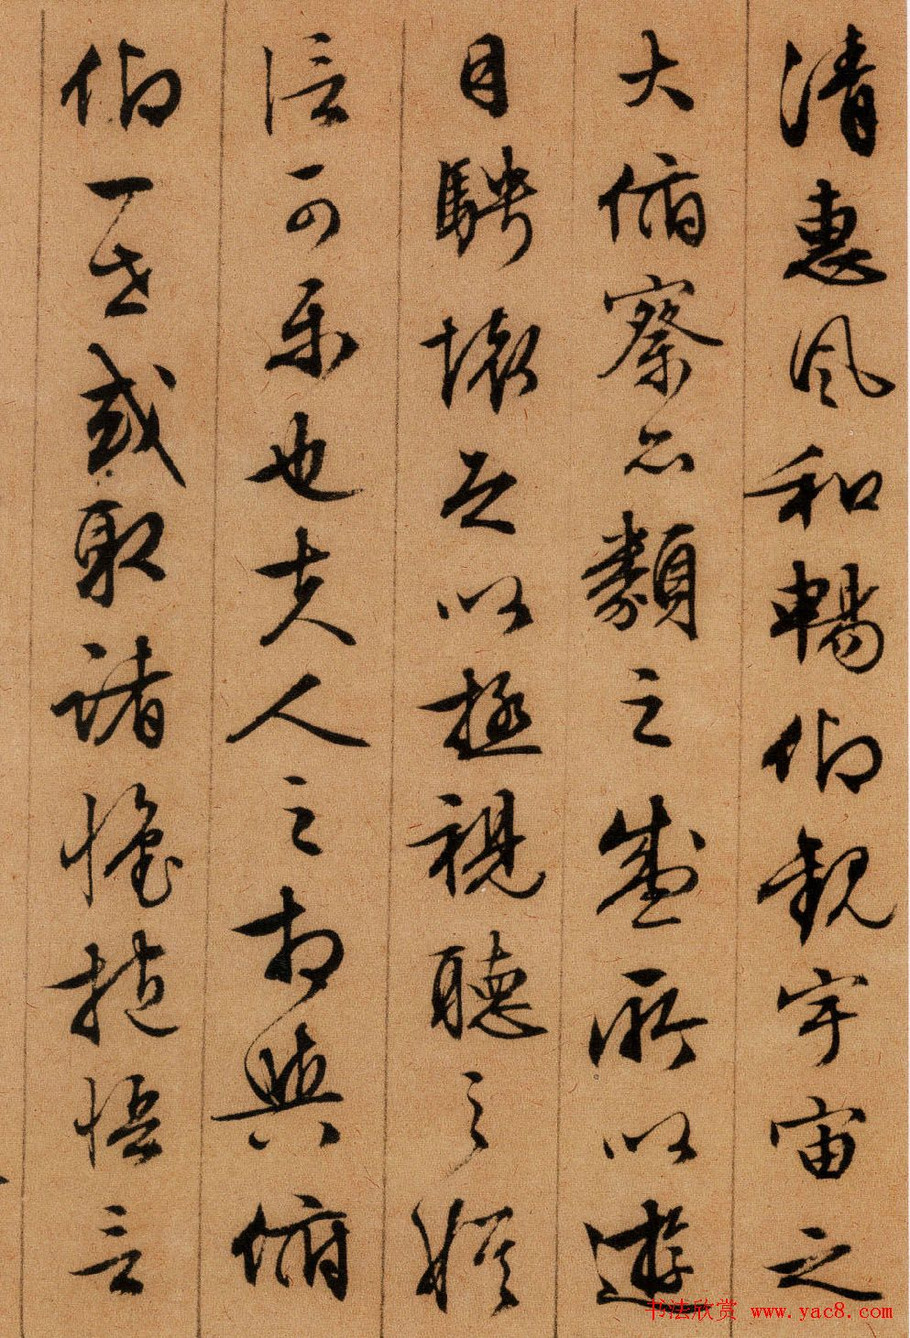 清惠風和暢仰觀宇宙之
大俯察品類之盛所以遊
目騁懷足以極視聽之娛
信可樂也夫人之相與俯
仰一世或取諸懷抱悟言
书法欣赏 www.yac8.com